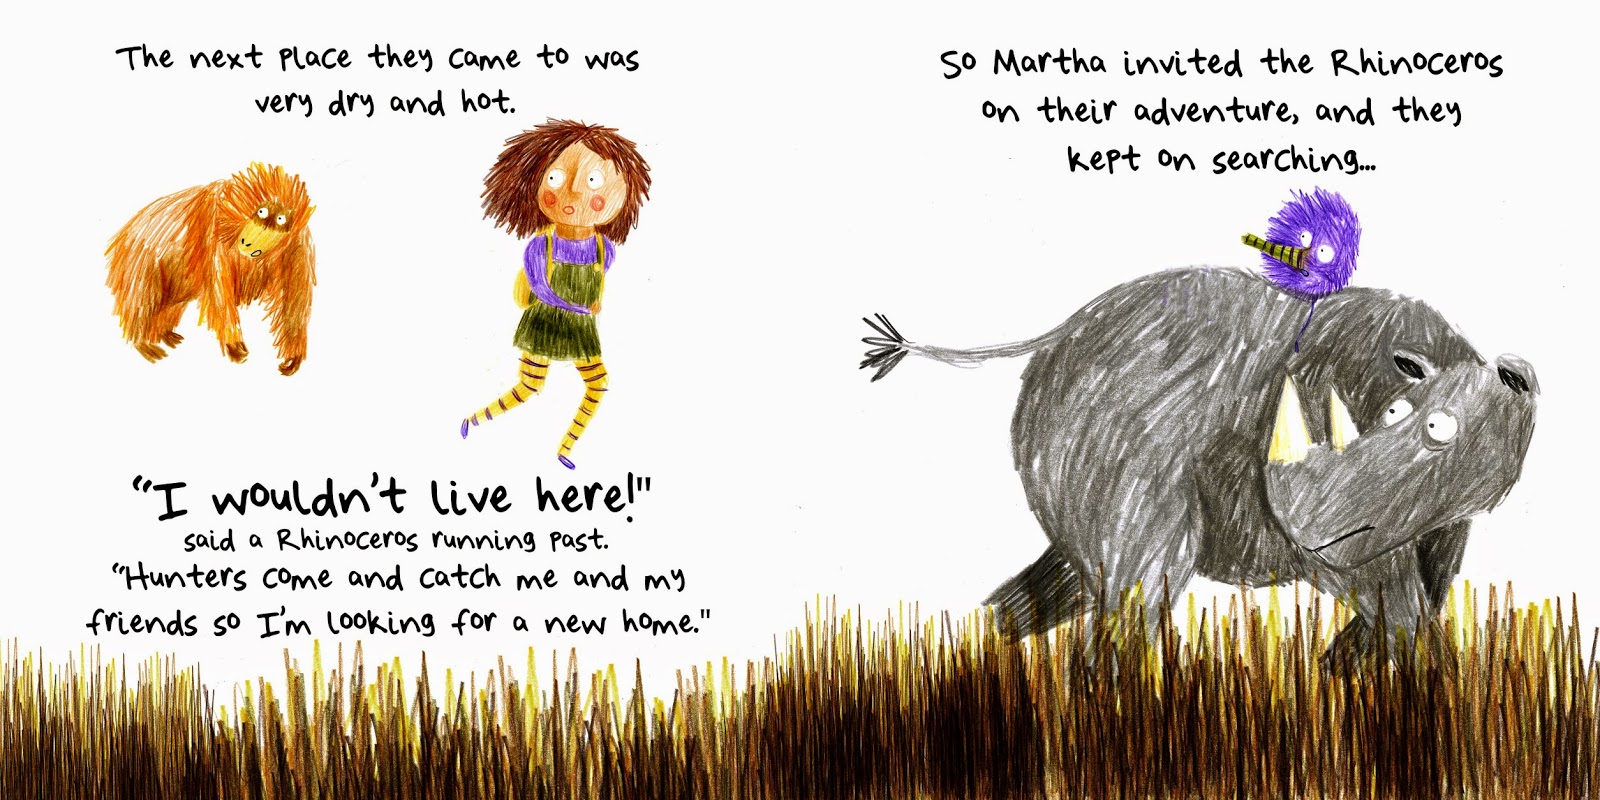 The next place they came to was
very dry and hot.
"I wouldn't live here!"
said a Rhinoceros running past.
"Hunters come and catch me and my
friends so I'm looking for a new home."
So Martha invited the Rhinoceros
on their adventure, and they
kept on searching...